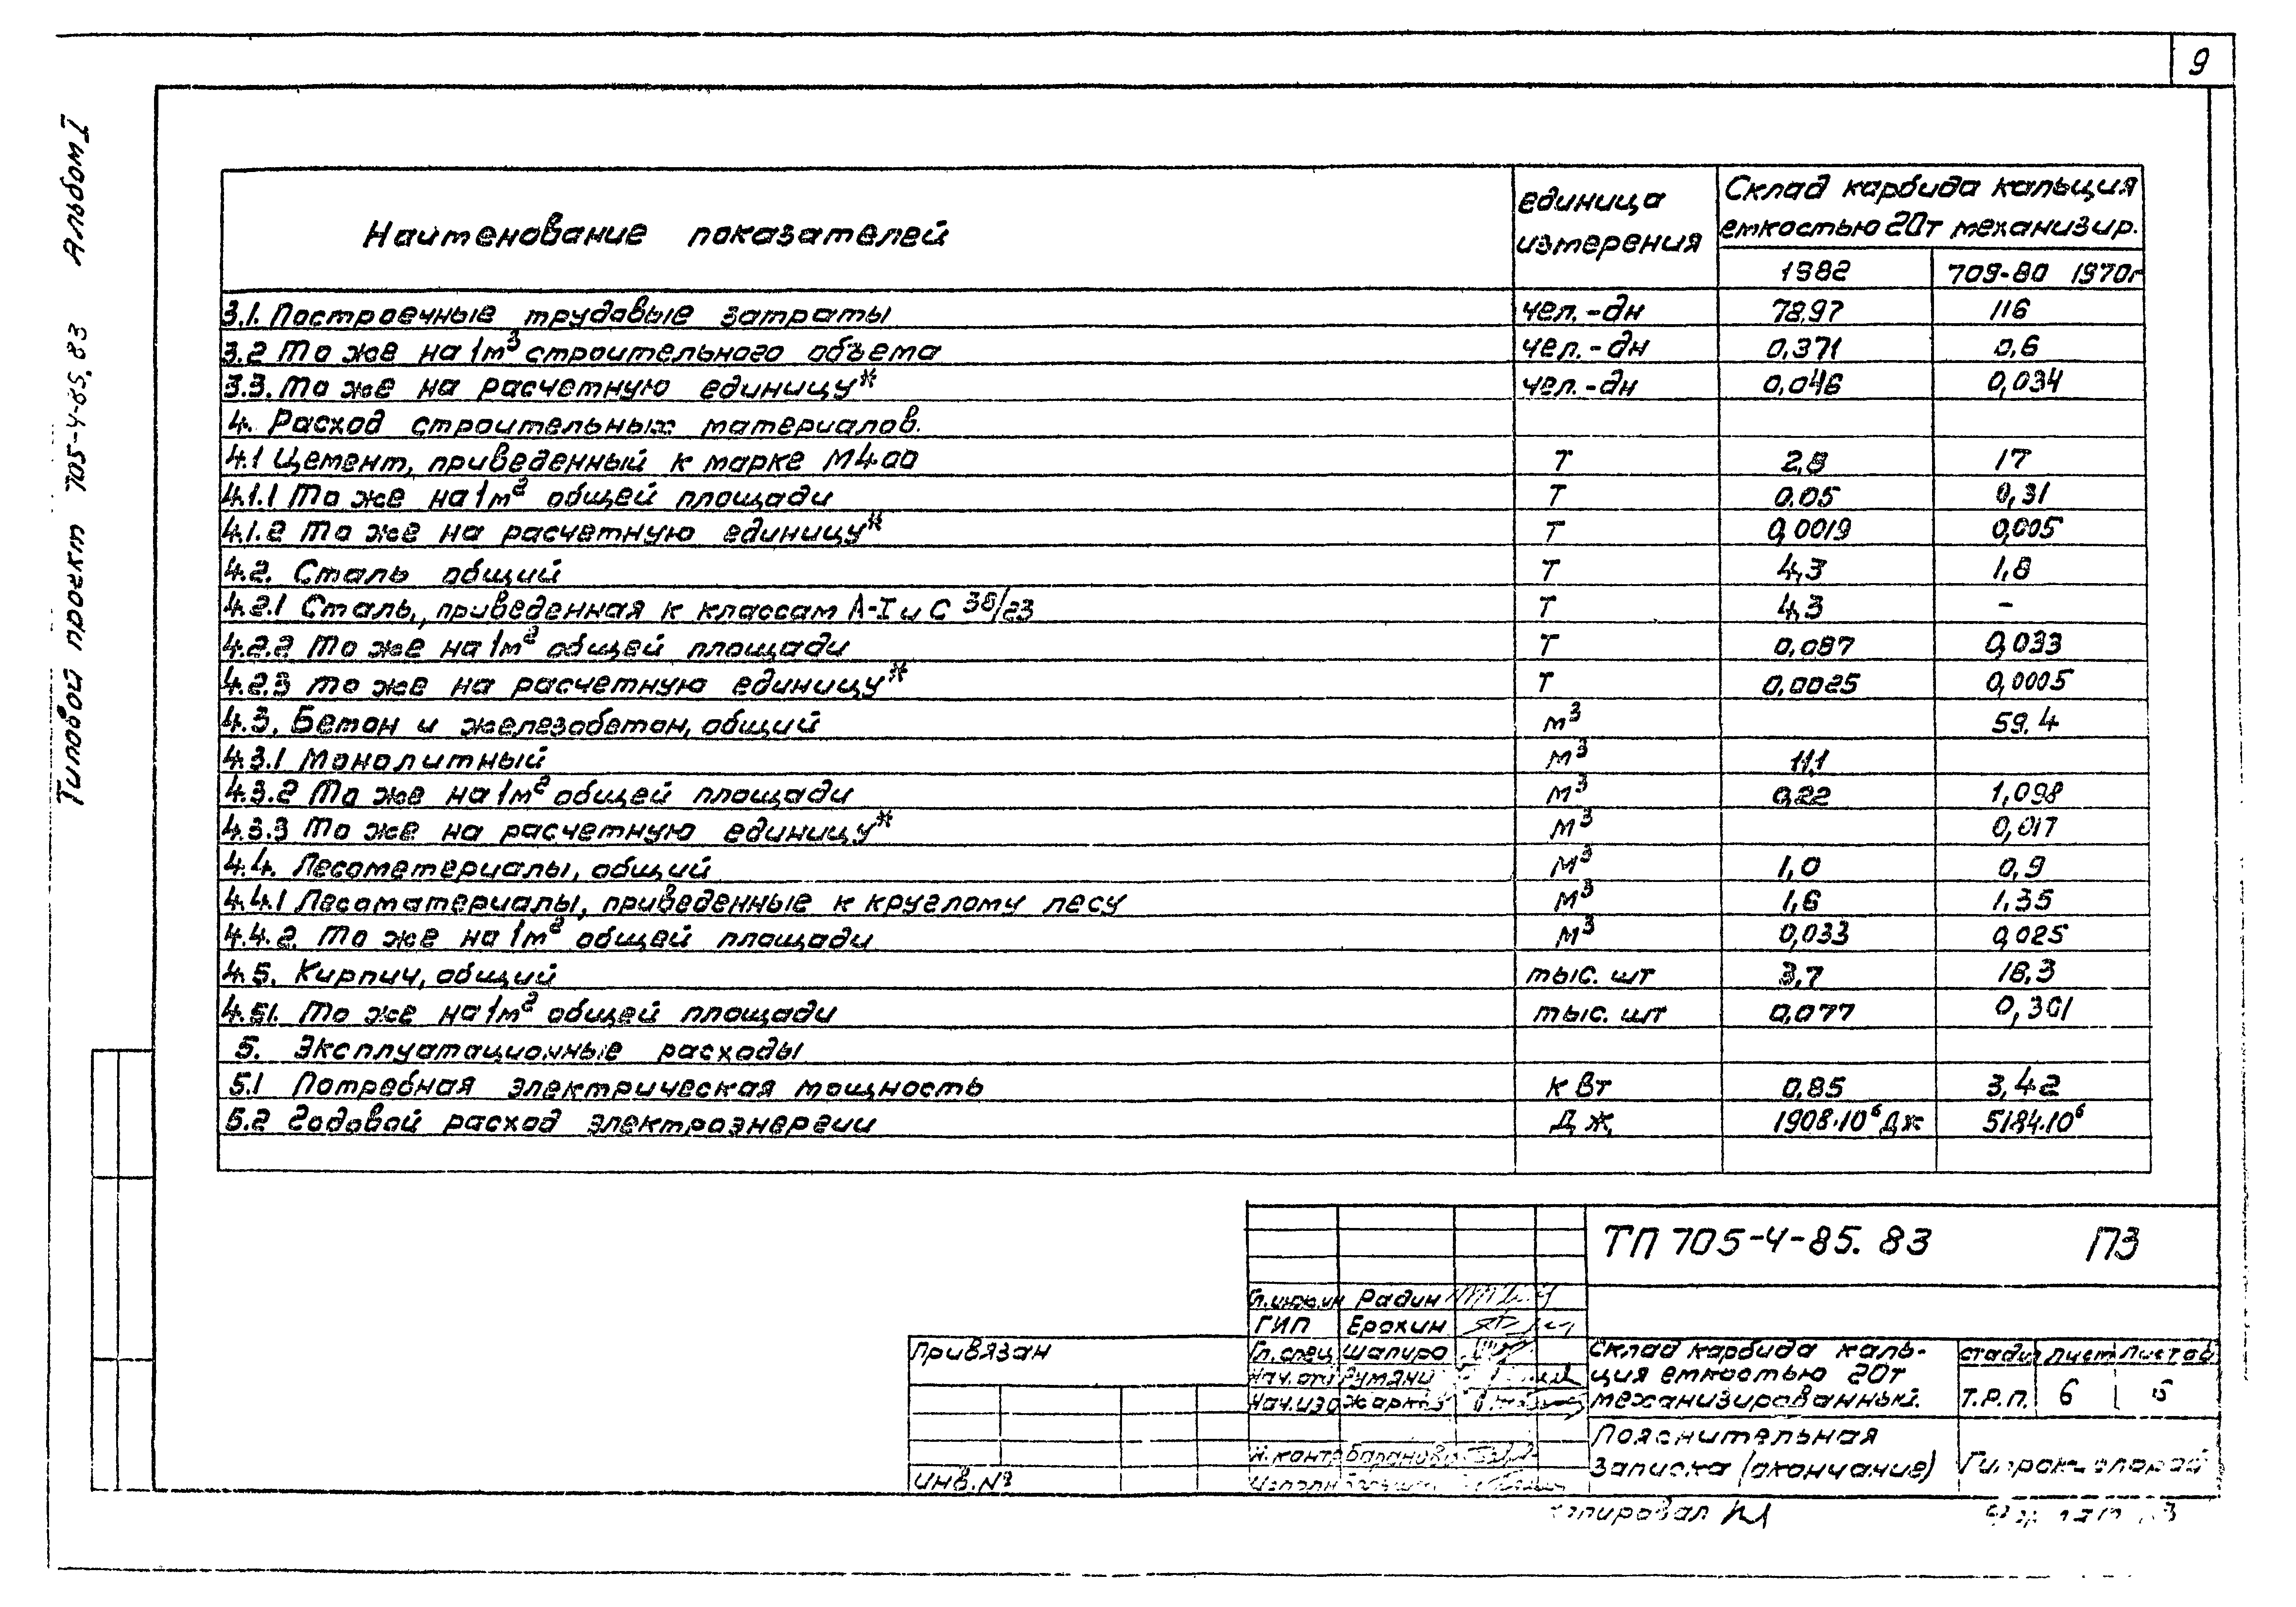 9
Альбом I
Типовой проект 705-4-85.83
Наименование показателей
единица измерения
Склад карбида кальция
емкостью 20т механизир.
1982 709-80 1970г
3.1. Построечные трудовые затраты чел.-дн 78,97 116
3.2 То же на 1м³ строительного объема чел.-дн 0,371 0,6
3.3. То же на расчетную единицу* чел.-дн 0,046 0,034
4. Расход строительных материалов.
4.1 Цемент, приведенный к марке М400 Т 2,8 17
4.1.1 То же на 1м² общей площади Т 0,05 0,31
4.1.2 То же на расчетную единицу* Т 0,0019 0,005
4.2. Сталь общий Т 4,3 1,8
4.2.1 Сталь, приведенная к классам А-I и С 38/23 Т 4,3 -
4.2.2 То же на 1м² общей площади Т 0,087 0,033
4.2.3 то же на расчетную единицу* Т 0,0025 0,0005
4.3. Бетон и железобетон, общий м³ 59.4
4.3.1 Монолитный м³ 11,1
4.3.2 То же на 1м² общей площади м³ 0,22 1,098
4.3.3 То же на расчетную единицу* м³ 0,017
4.4. Лесометериалы, общий м³ 1,0 0,9
4.4.1 Лесоматериалы, приведенные к круглому лесу м³ 1,6 1,35
4.4.2. То же на 1м² общей площади м³ 0,033 0,025
4.5. Кирпич, общий тыс. шт 3,7 16,3
4.51. То же на 1м² общей площади тыс. шт 0,077 0,301
5. Эксплуатационные расходы
5.1 Потребная электрическая мощность кВт 0,85 3,42
5.2 Годовой расход электроэнергии Дж. 1908·10⁶ Дж 5184·10⁶
ТП 705-4-85.83 ПЗ
Гл.инж.ин Радин
ГИП Ерохин
Гл.спец Шапиро
Нач.отд Румани
Нач.изо
Н.контр
Привязан
Инв.№
Склад карбида каль-
ция емкостью 20т
механизированный.
стадия лист листов
Т.Р.П. 6 6
Пояснительная
записка (окончание)
Копировал